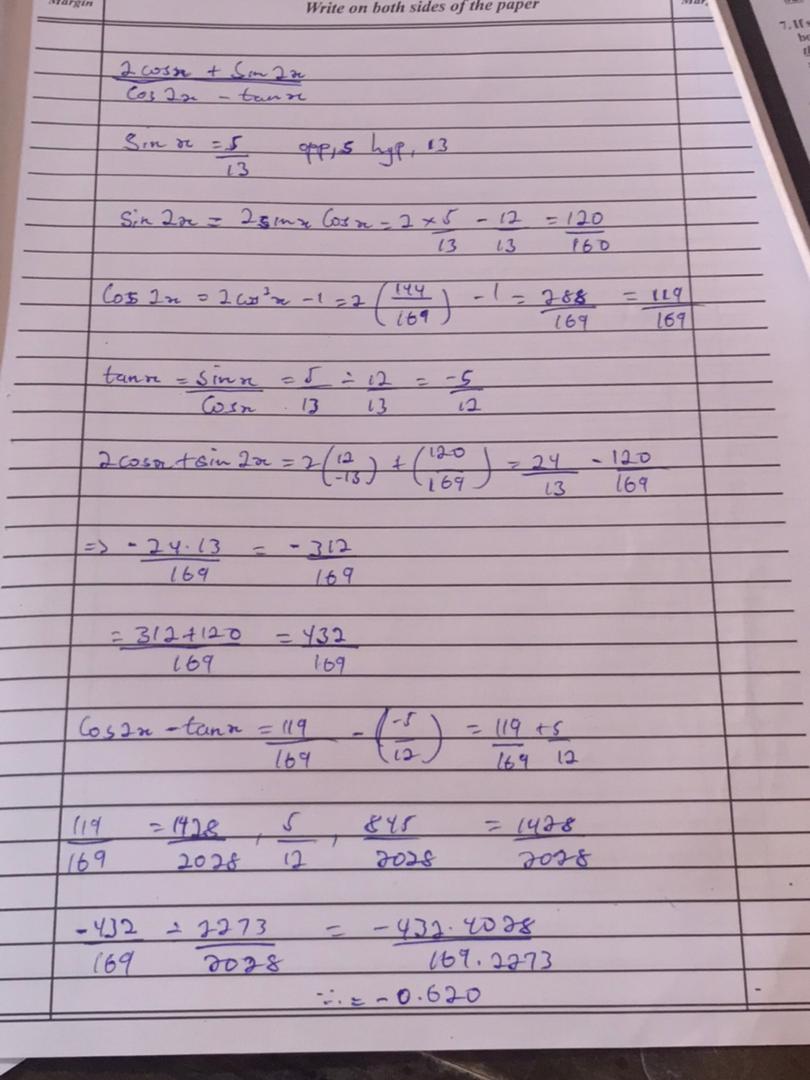 Margin Write on both sides of the paper Mar
7. If
be
2cosx + Sin 2x
Cos 2x - tanx
Sin x = 5/13 opp, 5 hyp, 13
Sin 2x = 2sinx Cosx = 2 × 5/13 - 12/13 = 120/160
Cos 2x = 2cos²x - 1 = 2 (144/169) - 1 = 288/169 = 119/169
tanx = Sinx/Cosx = 5/13 ÷ 12/13 = -5/12
2cosx + sin 2x = 2(12/-13) + (120/169) = 24/13 - 120/169
=> - 24·13/169 = - 312/169
= 312+120/169 = 432/169
Cos2x - tanx = 119/169 - (-5/12) = 119/169 + 5/12
119/169 = 1428/2028, 5/12, 845/2028 = 1428/2028
-432/169 ÷ 2273/2028 = -432·4028/169·2273
∴ = -0.620